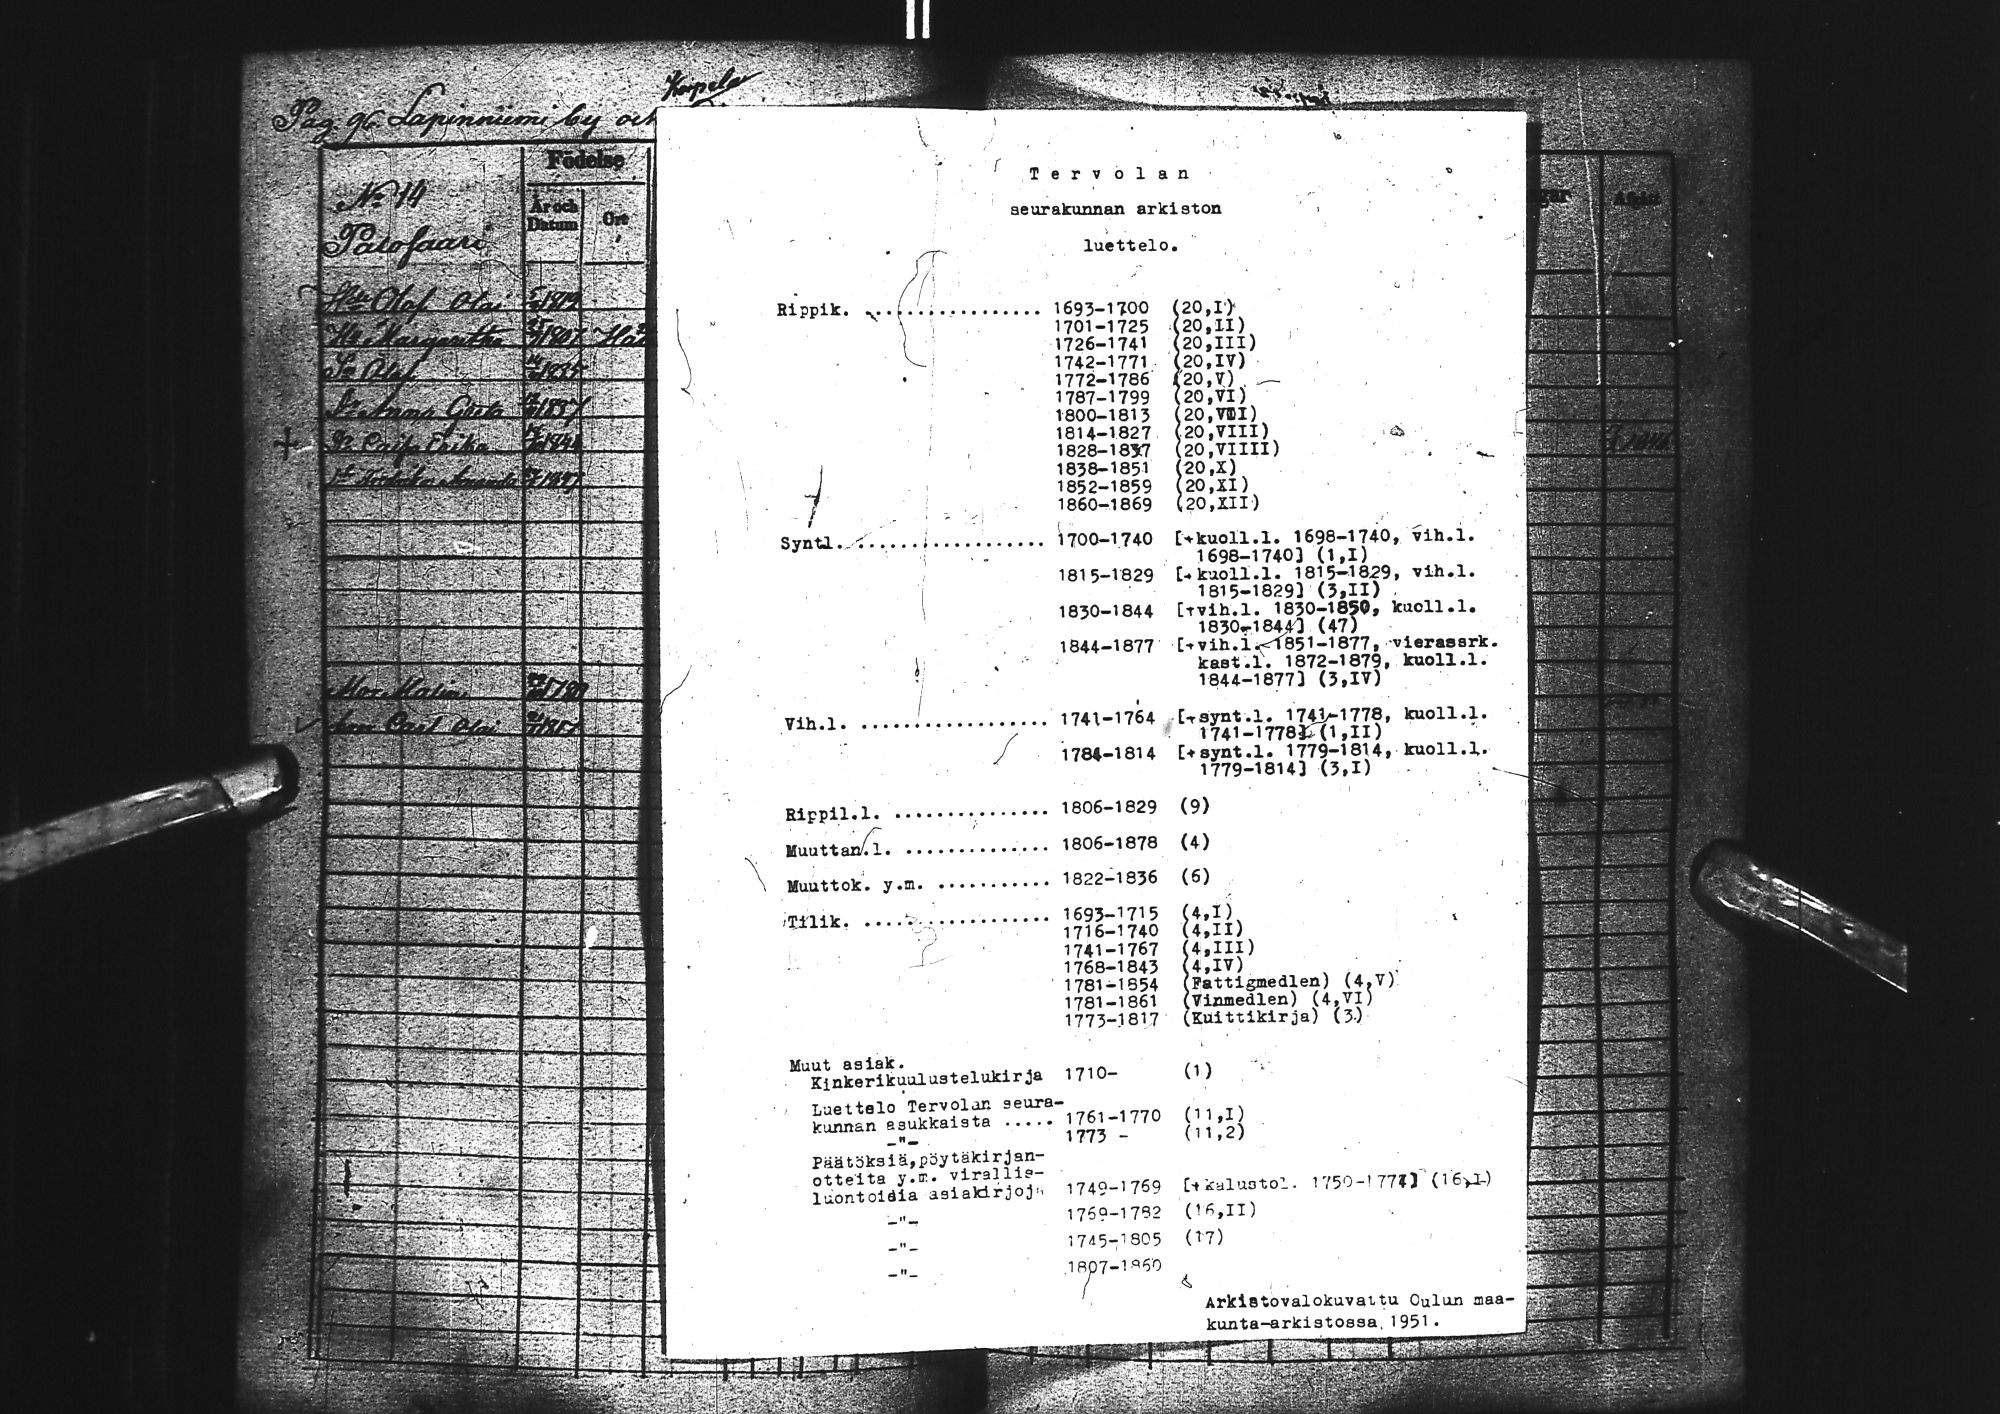 Korpela
Pag. 96 Lapinniemi by och
Födelse
No 14
År och
Datum
Ort
Margaretha 1807
Olof
Anna Greta 1837
Caisa Erika
Mor Malin
T e r v o l a n
seurakunnan arkiston
luettelo.
Rippik. ................. 1693-1700 (20,I)
1701-1725 (20,II)
1726-1741 (20,III)
1742-1771 (20,IV)
1772-1786 (20,V)
1787-1799 (20,VI)
1800-1813 (20,VII)
1814-1827 (20,VIII)
1828-1837 (20,VIIII)
1838-1851 (20,X)
1852-1859 (20,XI)
1860-1869 (20,XII)
Syntl. .................. 1700-1740 [+kuoll.l. 1698-1740, vih.l.
1698-1740] (1,I)
1815-1829 [+kuoll.l. 1815-1829, vih.l.
1815-1829] (3,II)
1830-1844 [+vih.l. 1830-1850, kuoll.l.
1830-1844] (47)
1844-1877 [+vih.l. 1851-1877, vierassrk.
kast.l. 1872-1879, kuoll.l.
1844-1877] (3,IV)
Vih.l. .................. 1741-1764 [+synt.l. 1741-1778, kuoll.l.
1741-1778] (1,II)
1784-1814 [+synt.l. 1779-1814, kuoll.l.
1779-1814] (3,I)
Rippil.l. ............... 1806-1829 (9)
Muuttan.l. .............. 1806-1878 (4)
Muuttok. y.m. ........... 1822-1836 (6)
Tilik. .................. 1693-1715 (4,I)
1716-1740 (4,II)
1741-1767 (4,III)
1768-1843 (4,IV)
1781-1854 (Fattigmedlen) (4,V)
1781-1861 (Vinmedlen) (4,VI)
1773-1817 (Kuittikirja) (3)
Muut asiak.
Kinkerikuulustelukirja 1710- (1)
Luettelo Tervolan seura-
kunnan asukkaista ..... 1761-1770 (11,I)
-"- 1773 - (11,2)
Päätöksiä,pöytäkirjan-
otteita y.m. virallis-
luontoisia asiakirjoja 1749-1769 [+kalustol. 1750-1771] (16,I)
-"- 1769-1782 (16,II)
-"- 1745-1805 (17)
-"- 1807-1860
Arkistovalokuvattu Oulun maa-
kunta-arkistossa 1951.